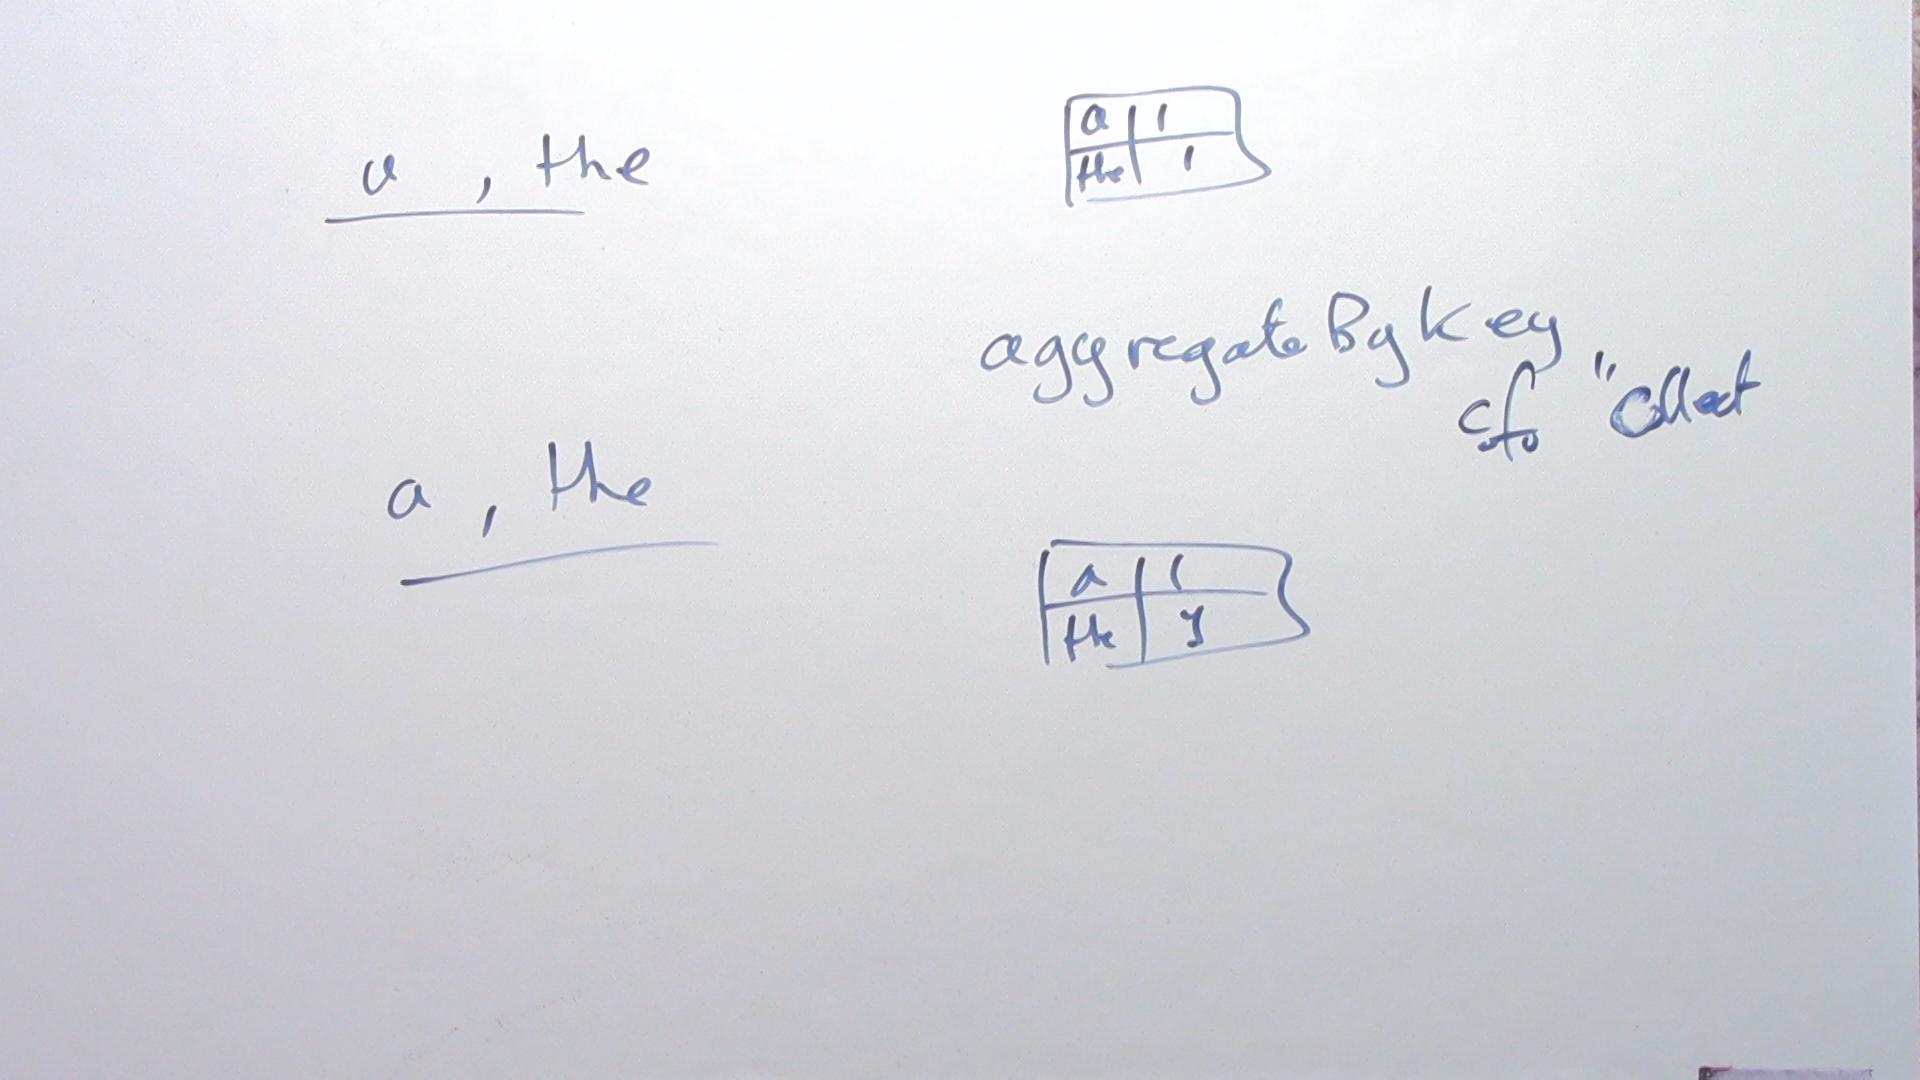 a , the
a 1
the 1
aggregateByKey
cf. "Collect
a , the
a 1
the